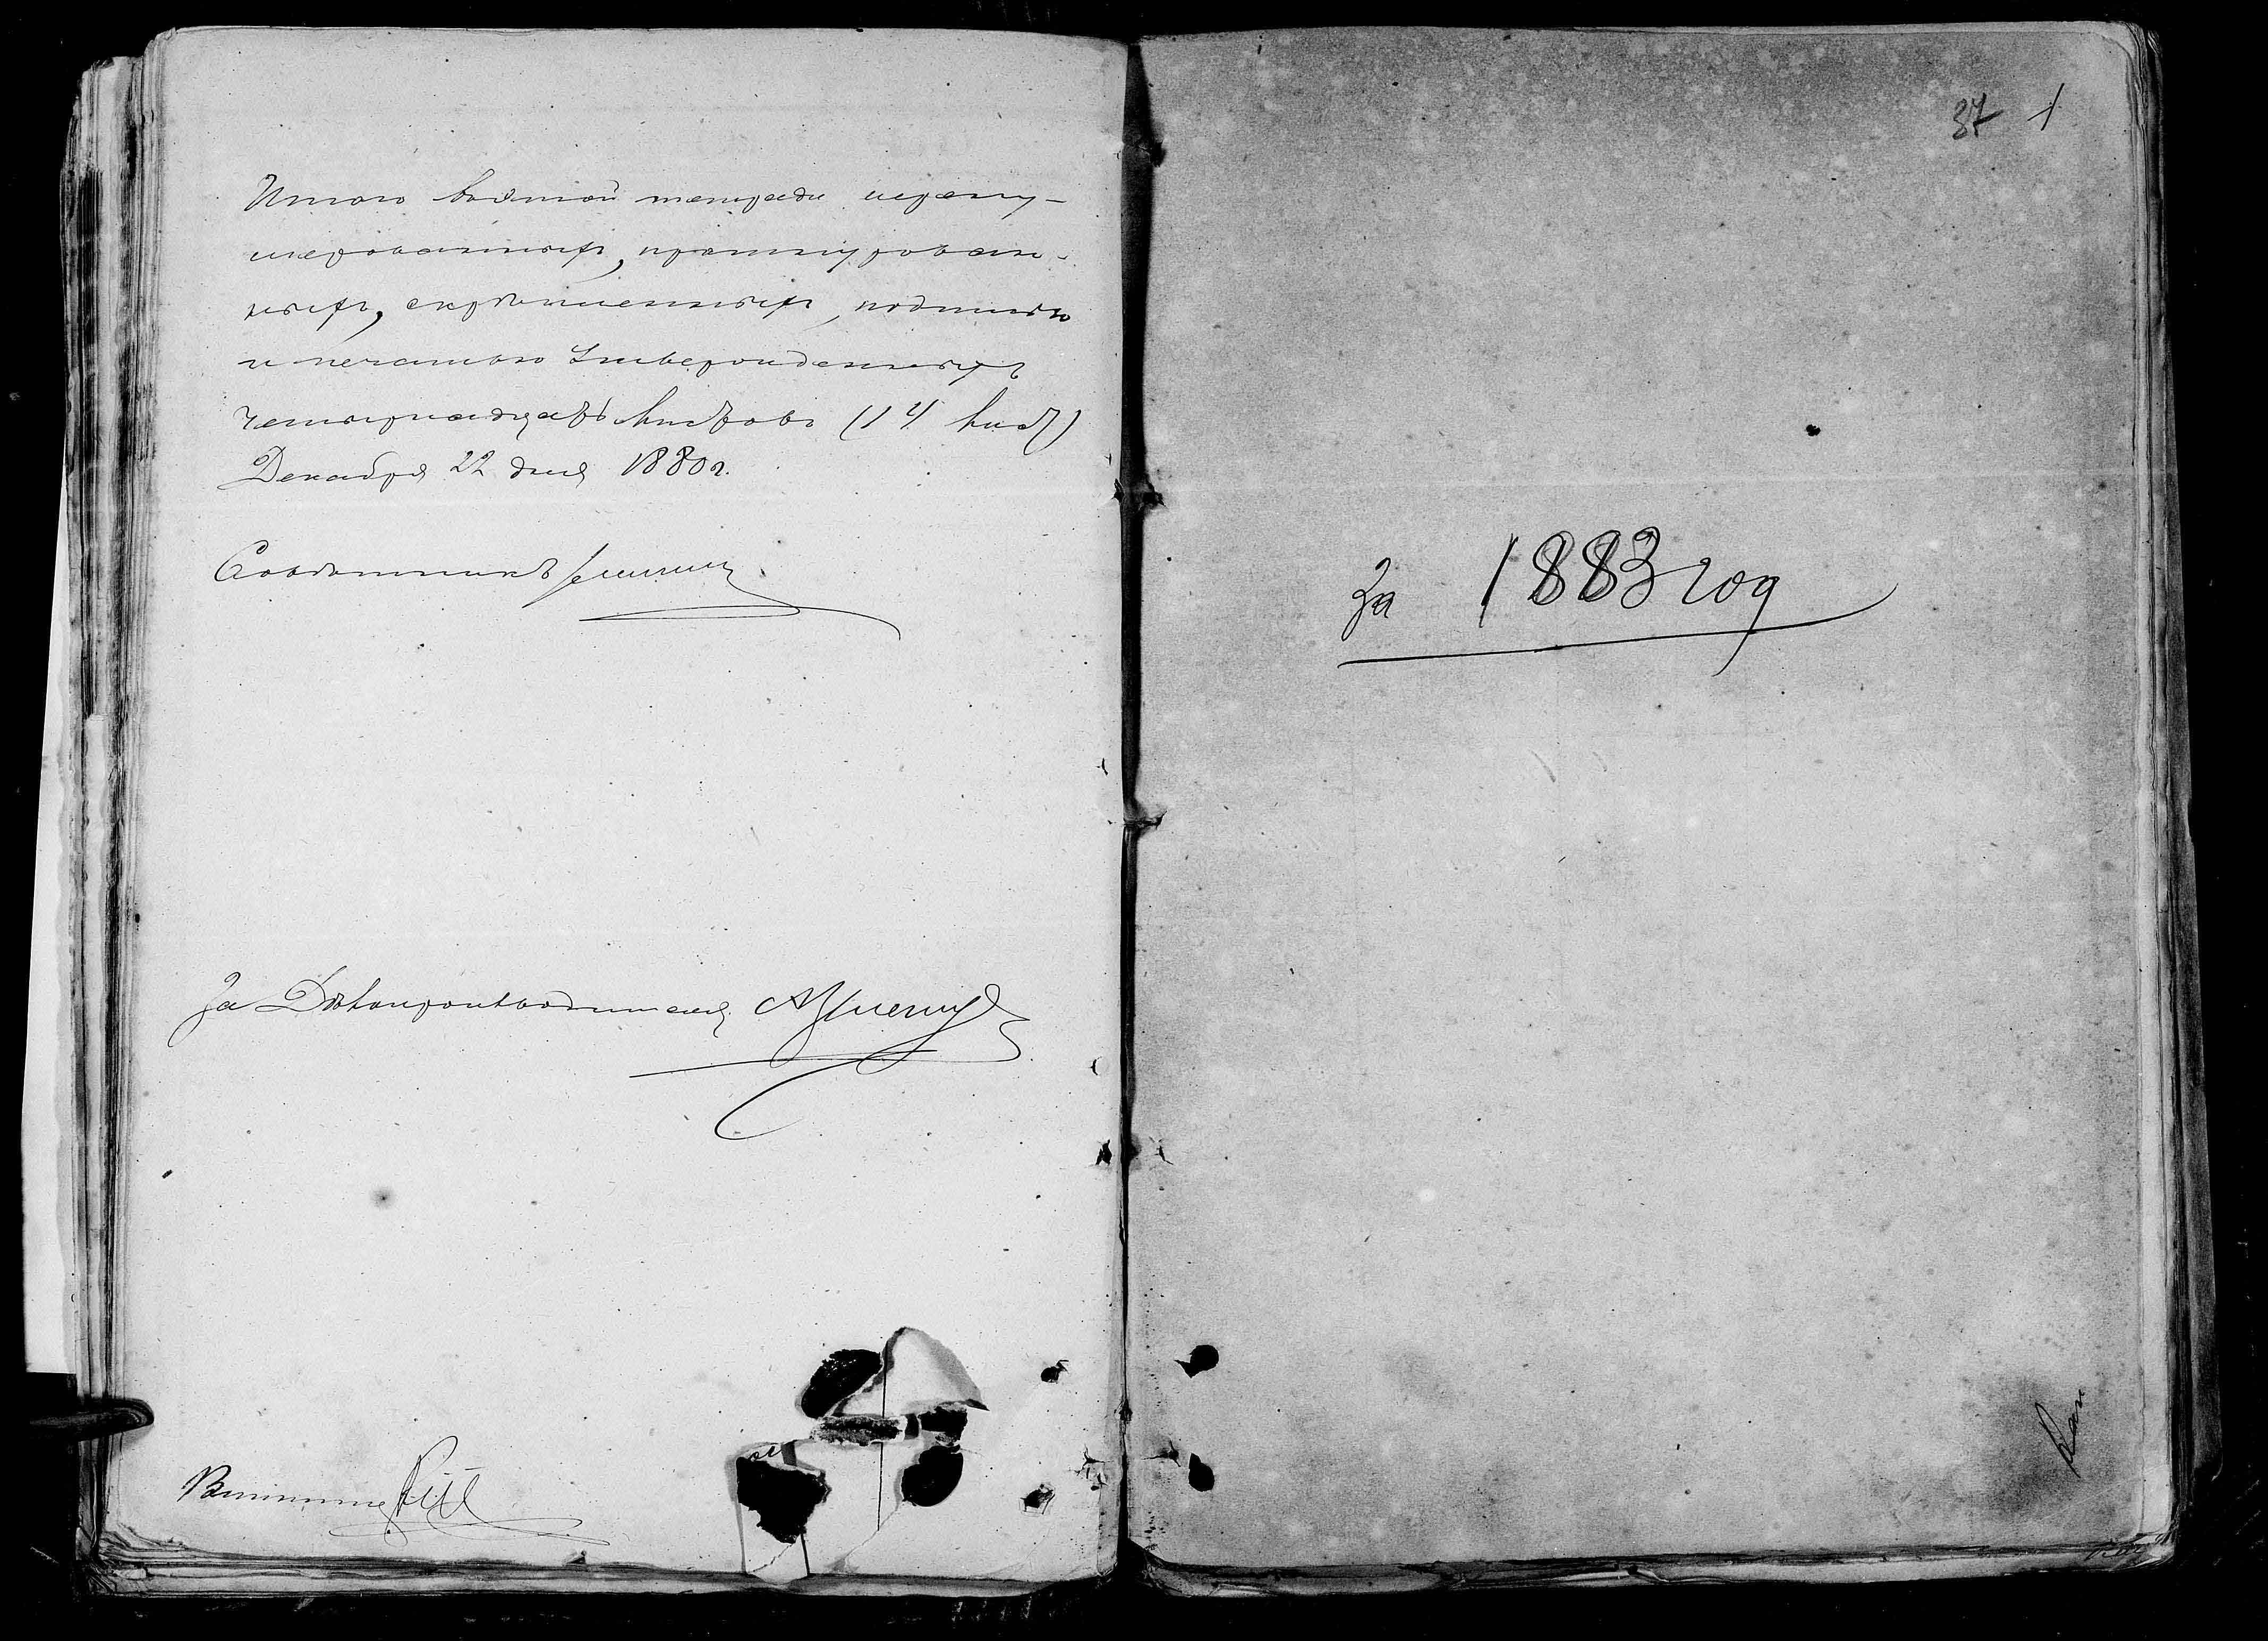 Итого въ этой тетради перену-
мерованныхъ, прошнурован-
ныхъ, скрѣпленныхъ, подписью
и печатью утвержденныхъ
четырнадцать листовъ (14 лист)
Декабря 22 дня 1880 г.
Совѣтникъ
За Дѣлопроизводителя
37 1
За 1883 год